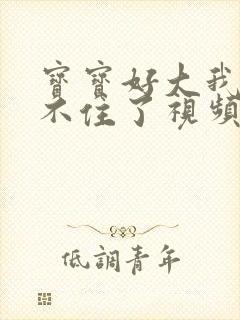 寶寶好大我
不住了視頻
低調青年